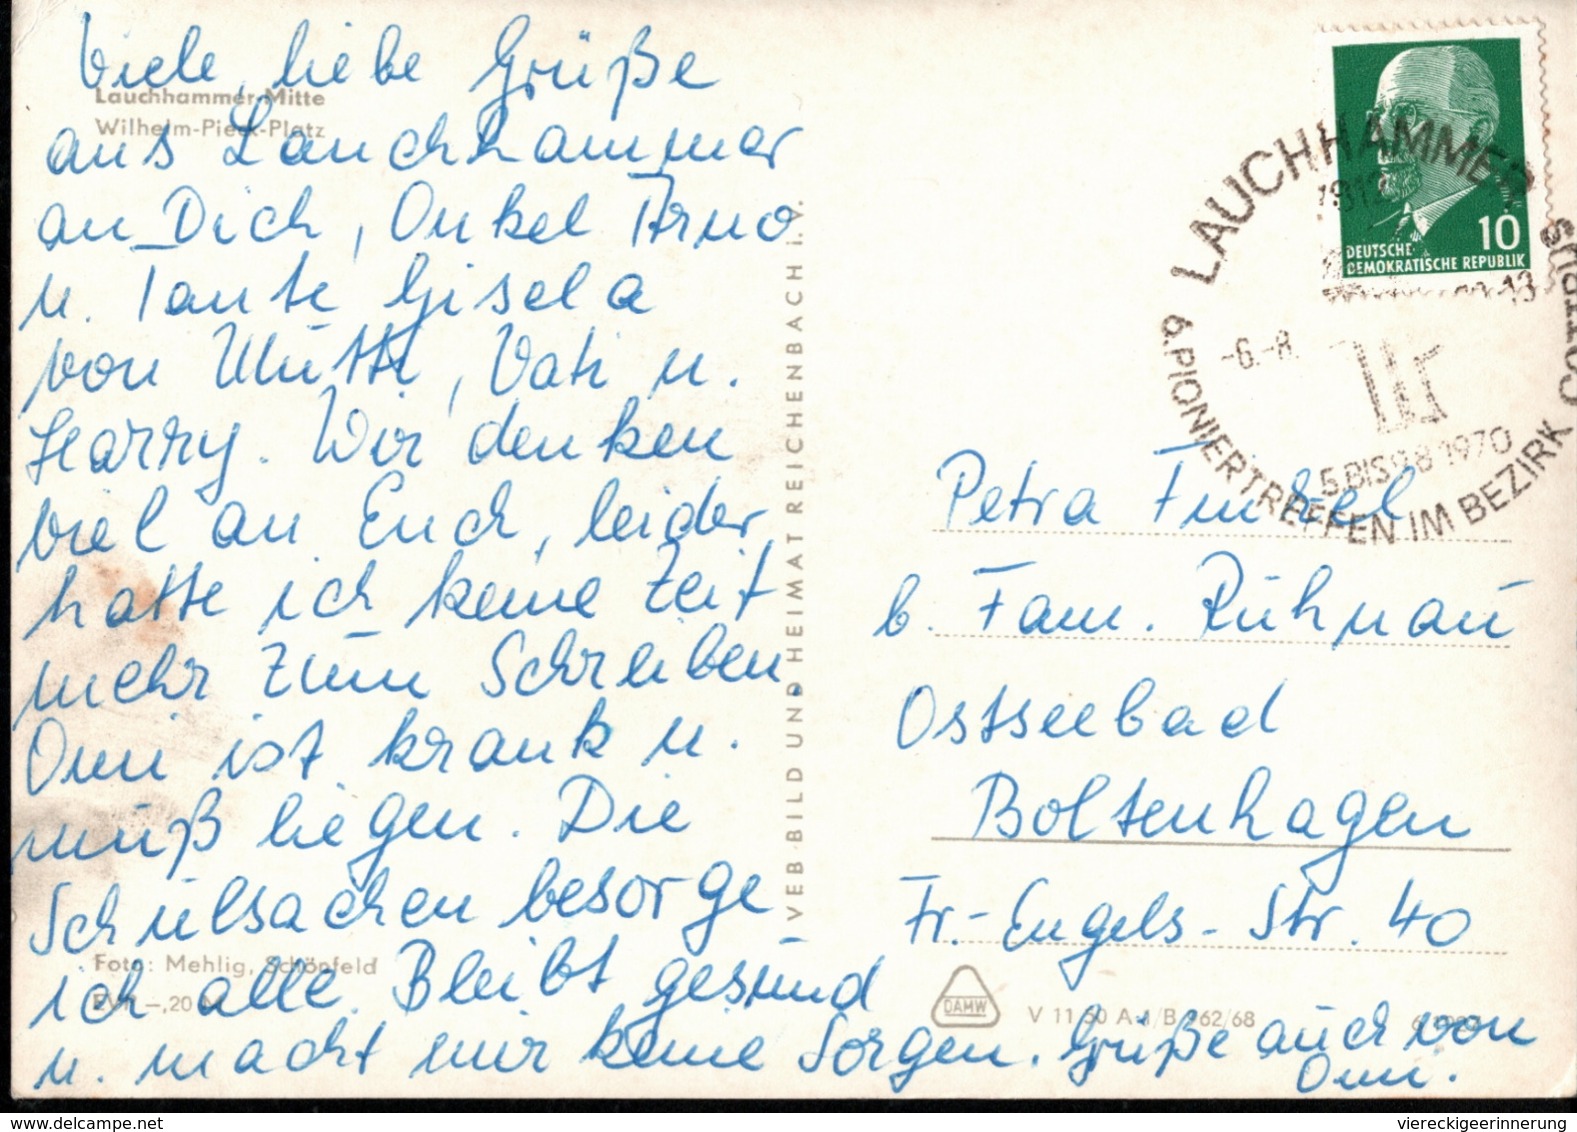 Viele, liebe Grüße
aus Lauchhammer
an Dich, Onkel Arno
u. Tante Gisela
von Mutti, Vati u.
Harry. Wir denken
viel an Euch, leider
hatte ich keine Zeit
mehr zum Schreiben
Omi ist krank u.
muß liegen. Die
Schulsachen besorge
ich alle. Bleibt gesund
u. macht mir keine Sorgen. Grüße auch von
Omi.
Lauchhammer-Mitte
Wilhelm-Pieck-Platz
Foto: Mehlig, Schönfeld
EVP. –,20 M
VEB BILD UND HEIMAT REICHENBACH i. V.
DEUTSCHE
DEMOKRATISCHE REPUBLIK
10
LAUCHHAMMER
7812
-6.-8.
-13
5.BIS 9.8.1970
6.PIONIERTREFFEN IM BEZIRK COTTBUS
Petra Finkel
b. Fam. Rühnau
Ostseebad
Boltenhagen
Fr.-Engels-Str. 40
DAMW
V 11 50 A 1/B 162/68
delcampe.net
viereckigeerinnerung